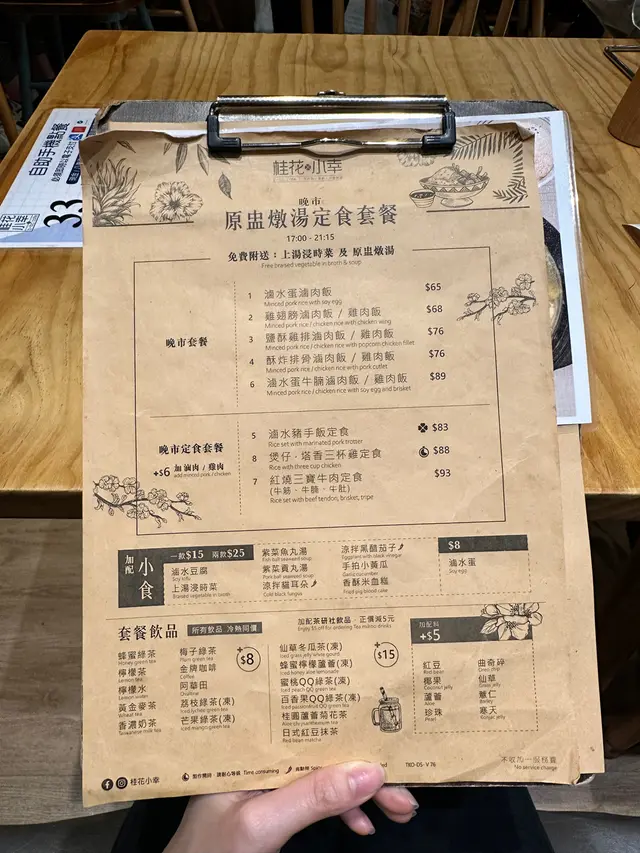 自助手機點餐
桂花
小幸
33
桂花小幸
晚市
原盅燉湯定食套餐
17:00 - 21:15
免費附送：上湯浸時菜 及 原盅燉湯
Free braised vegetable in broth & soup
晚市套餐
1 滷水蛋滷肉飯 $65
Minced pork rice with soy egg
2 雞翅膀滷肉飯 / 雞肉飯 $68
Minced pork rice / chicken rice with chicken wing
3 鹽酥雞排滷肉飯 / 雞肉飯 $76
Minced pork rice / chicken rice with popcorn chicken fillet
4 酥炸排骨滷肉飯 / 雞肉飯 $76
Minced pork rice / chicken rice with pork cutlet
6 滷水蛋牛腩滷肉飯 / 雞肉飯 $89
Minced pork rice / chicken rice with soy egg and brisket
晚市定食套餐
+$6 加 滷肉 / 雞肉
add minced pork / chicken
5 滷水豬手飯定食 $83
Rice set with marinated pork trotter
8 煲仔‧塔香三杯雞定食 $88
Rice set with three cup chicken
7 紅燒三寶牛肉定食 $93
(牛筋、牛腩、牛肚)
Rice set with beef tendon, brisket, tripe
加配 小食
一款$15 兩款$25
滷水豆腐
Soy tofu
上湯浸時菜
Braised vegetable in broth
紫菜魚丸湯
Fish ball seaweed soup
紫菜貢丸湯
Pork ball seaweed soup
涼拌貓耳朵
Cold black fungus
涼拌黑醋茄子
Eggplant with black vinegar
手拍小黃瓜
Garlic cucumber
香酥米血糕
Fried pig blood cake
$8
滷水蛋
Soy egg
套餐飲品 所有飲品 冷熱同價
+$8
蜂蜜綠茶
Honey green tea
檸檬茶
Lemon tea
檸檬水
Lemon water
黃金麥茶
Wheat tea
香濃奶茶
Taiwanese milk tea
梅子綠茶
Plum green tea
金牌咖啡
Coffee
阿華田
Ovaltine
荔枝綠茶(凍)
Iced lychee green tea
芒果綠茶(凍)
Iced mango green tea
加配茶研社飲品，正價減5元
Enjoy $5 off for ordering Tea miioo drinks
+$15
仙草冬瓜茶(凍)
Iced grass jelly white gourd
蜂蜜檸檬蘆薈(凍)
Iced honey aloe lemonade
蜜桃QQ綠茶(凍)
Iced peach QQ green tea
百香果QQ綠茶(凍)
Iced passionfruit QQ green tea
桂圓蘆薈菊花茶
日式紅豆抹茶
Red bean matcha
加配料
+$5
紅豆
Red bean
椰果
Coconut jelly
蘆薈
Aloe
珍珠
Pearl
曲奇碎
Oreo chip
仙草
Grass jelly
薏仁
Barley
寒天
Konjac jelly
桂花小幸
製作需時，請耐心等候 Time consuming
TKO-DS- V 76
不收加一服務費
No service charge